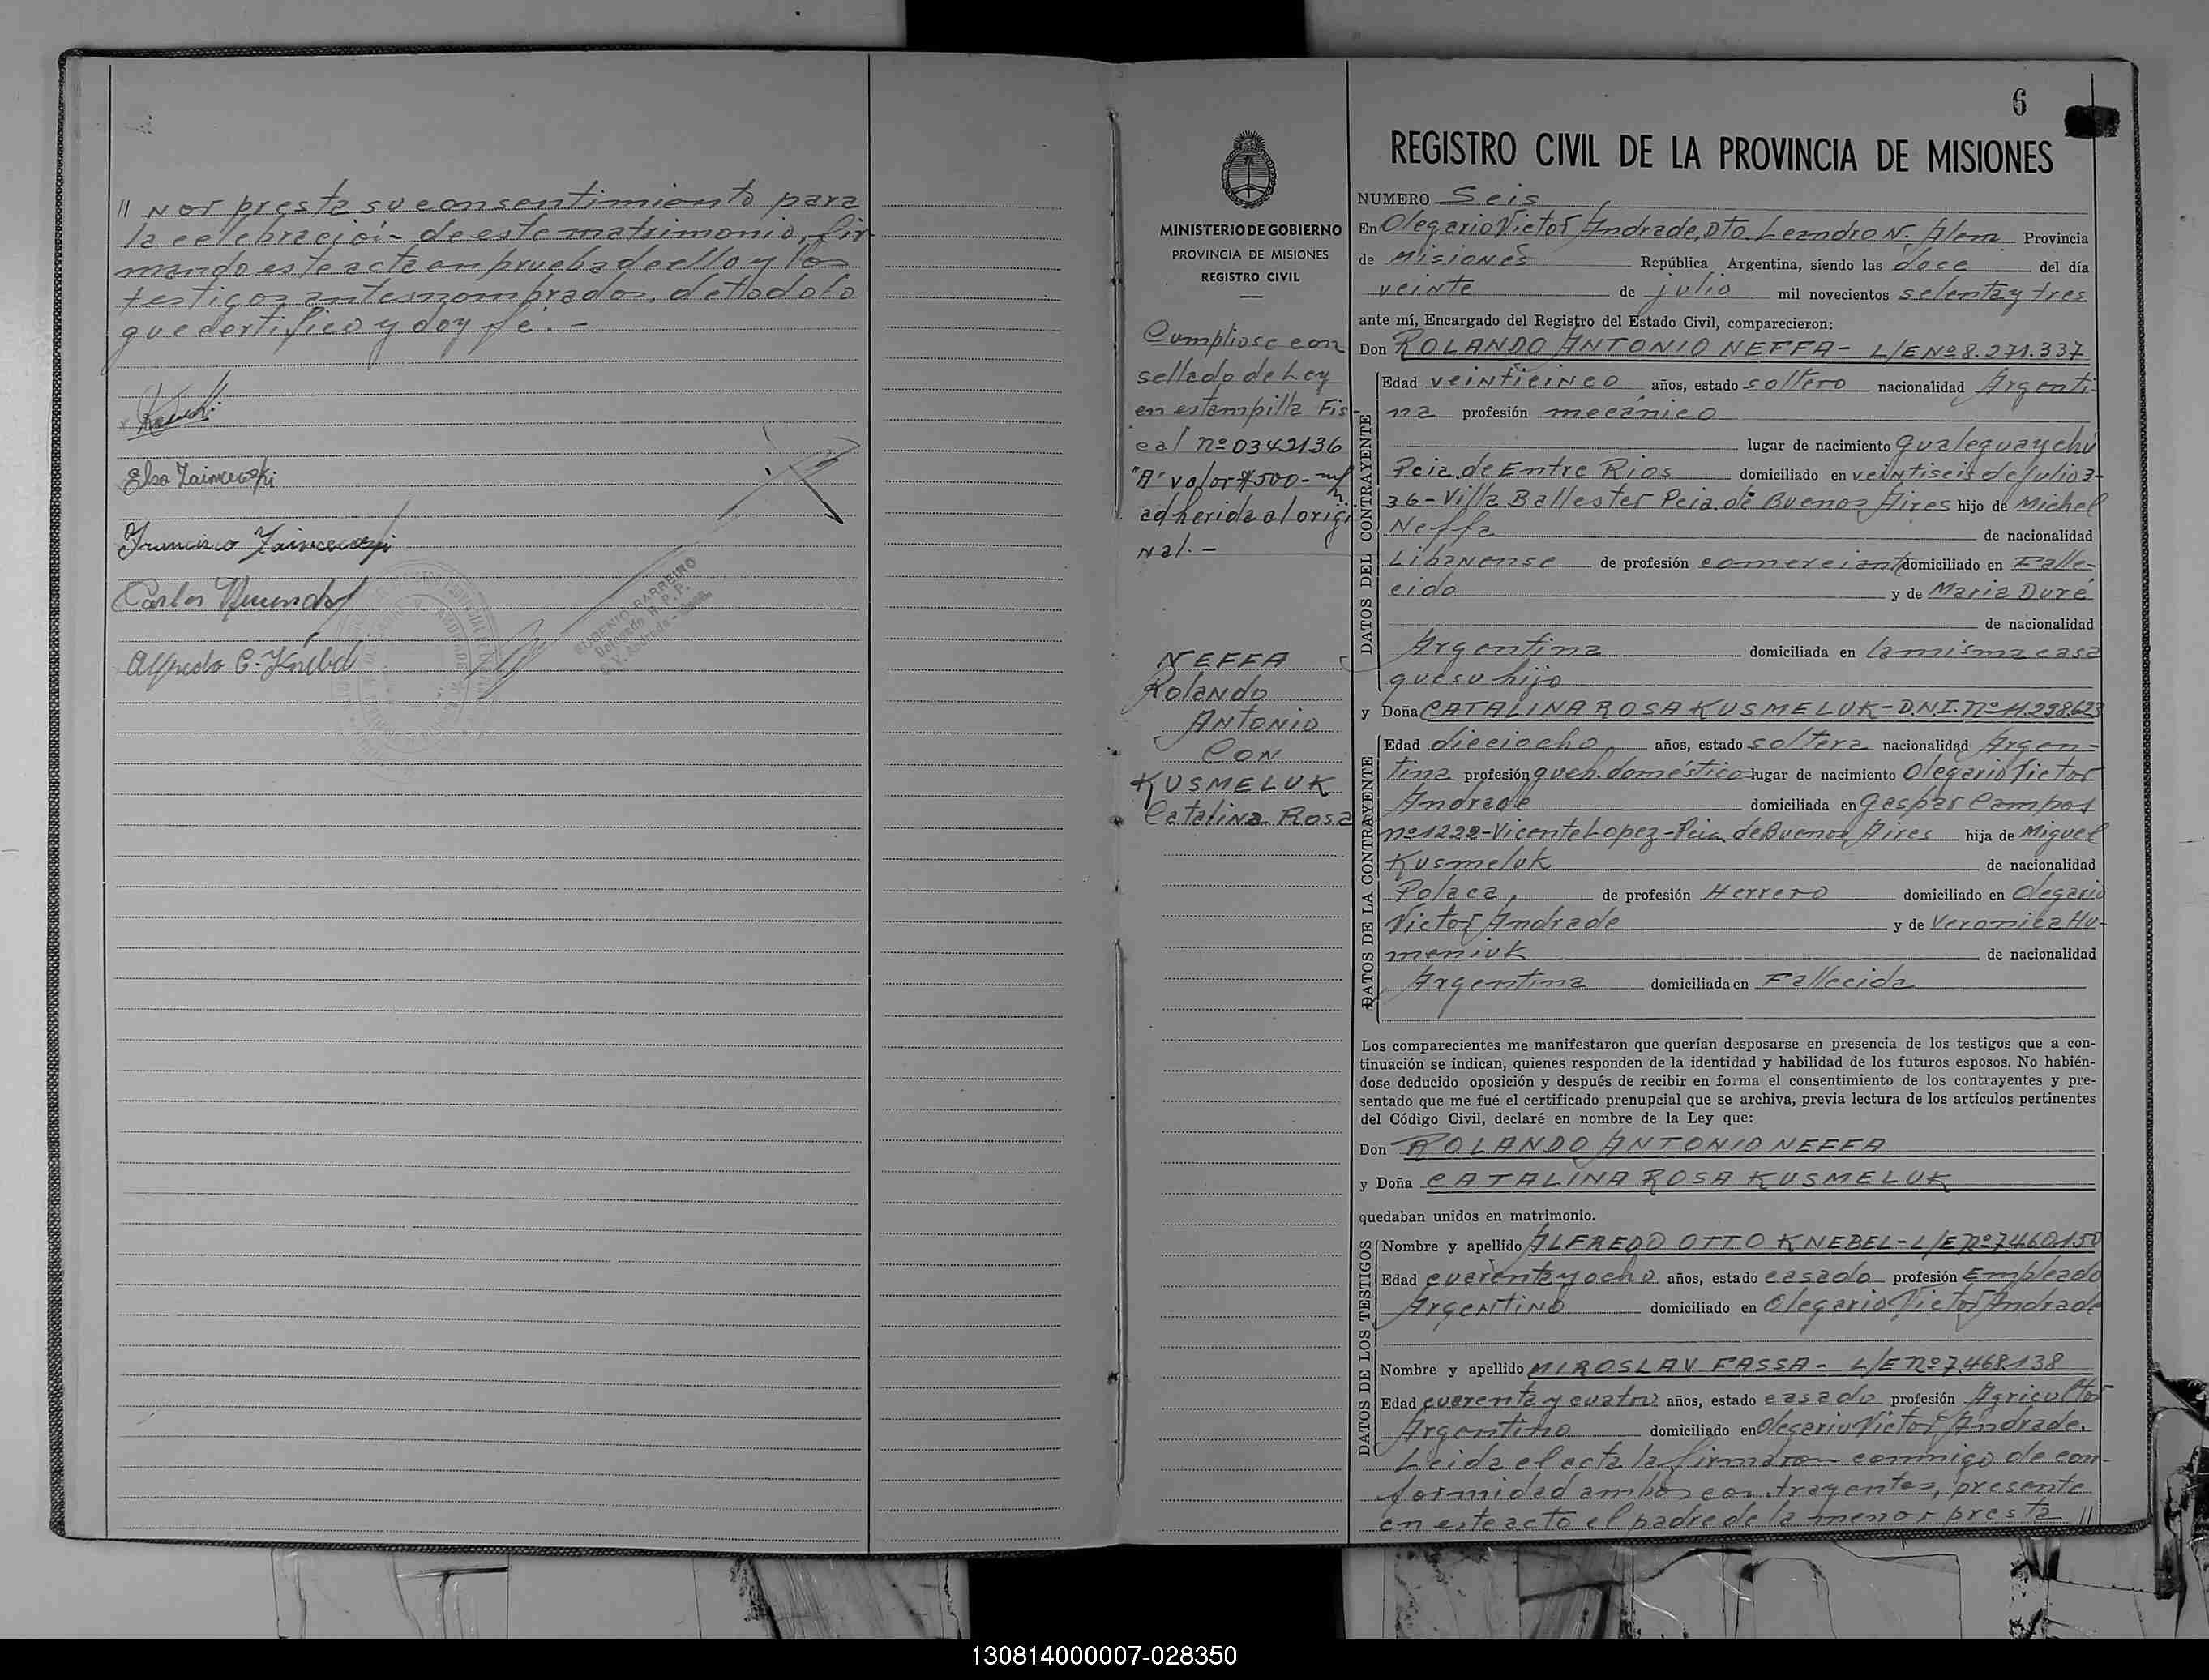 " nor presta su consentimiento para
la celebración de este matrimonio, fir-
mando este acta en prueba de ello y los
testigos antes nombrados, de todo lo
que certifico y doy fé.-
Elsa Zaincewski
Francisco
Carlos
Alfredo O. Knebel
EUGENIO BARREIRO
Delegado R.P.P.
O. V. Andrade - Misiones
MINISTERIO DE GOBIERNO
PROVINCIA DE MISIONES
REGISTRO CIVIL
Cumpliose con
sellado de Ley
en estampilla Fis-
cal nº 0342136
"A" valor $500- m/n.
adherida al origi
nal.-
NEFFA
Rolando
Antonio
CON
KUSMELUK
Catalina Rosa
6
REGISTRO CIVIL DE LA PROVINCIA DE MISIONES
NUMERO Seis
En Olegario Victor Andrade, Dto. Leandro N. Alem Provincia
de Misiones República Argentina, siendo las doce del día
veinte de julio mil novecientos setenta y tres
ante mí, Encargado del Registro del Estado Civil, comparecieron:
Don ROLANDO ANTONIO NEFFA- L/E Nº 8.271.337
DATOS DEL CONTRAYENTE
Edad veinticinco años, estado soltero nacionalidad Argenti-
na profesión mecánico
lugar de nacimiento Gualeguaychú
Pcia. de Entre Rios domiciliado en veintiseis de Julio 3-
36-Villa Ballester Pcia. de Buenos Aires hijo de Michel
Neffa de nacionalidad
Libanense de profesión comerciante domiciliado en Falle-
cido y de Maria Duré
de nacionalidad
Argentina domiciliada en la misma casa
que su hijo
y Doña CATALINA ROSA KUSMELUK-D.N.I. Nº 11.298.623
DATOS DE LA CONTRAYENTE
Edad dieciocho años, estado soltera nacionalidad Argen-
tina profesión queh. domésticos lugar de nacimiento Olegario Victor
Andrade domiciliada en Gaspar Campos
nº 1222-Vicente Lopez-Pcia. de Buenos Aires hija de Miguel
Kusmeluk de nacionalidad
Polaca, de profesión Herrero domiciliado en Olegario
Victor Andrade y de Veronica Hu-
meniuk de nacionalidad
Argentina domiciliada en Fallecida
Los comparecientes me manifestaron que querían desposarse en presencia de los testigos que a con-
tinuación se indican, quienes responden de la identidad y habilidad de los futuros esposos. No habién-
dose deducido oposición y después de recibir en forma el consentimiento de los contrayentes y pre-
sentado que me fué el certificado prenupcial que se archiva, previa lectura de los artículos pertinentes
del Código Civil, declaré en nombre de la Ley que:
Don ROLANDO ANTONIO NEFFA
y Doña CATALINA ROSA KUSMELUK
quedaban unidos en matrimonio.
DATOS DE LOS TESTIGOS
Nombre y apellido ALFREDO OTTO KNEBEL-L/E nº 7.460.150
Edad cuarenta y ocho años, estado casado profesión Empleado
Argentino domiciliado en Olegario Victor Andrade
Nombre y apellido MIROSLAV FASSA- L/E nº 7.468.138
Edad cuarenta y cuatro años, estado casado profesión Agricultor
Argentino domiciliado en Olegario Victor Andrade.
Leida el acta la firmaron conmigo de con-
formidad ambos contrayentes, presente
en este acto el padre de la menor presta "
130814000007-028350